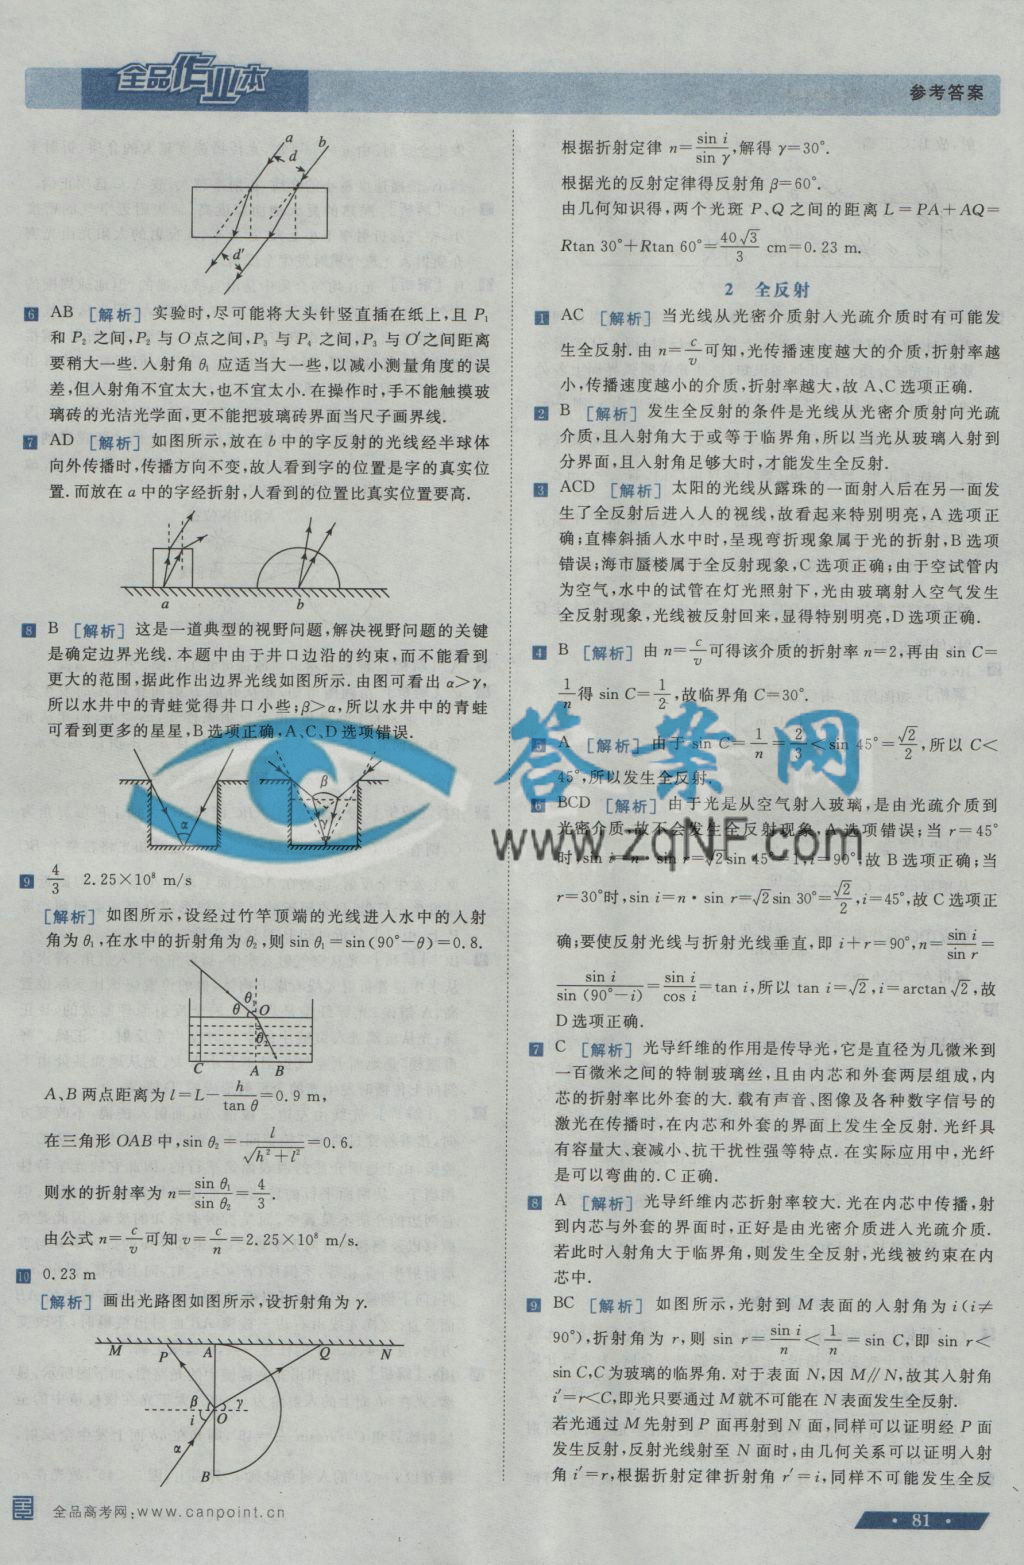 全品作业本
参考答案
a
b
d
d′
6 AB [解析] 实验时,尽可能将大头针竖直插在纸上,且 P₁
和 P₂ 之间,P₂ 与 O 点之间,P₃ 与 P₄ 之间,P₃ 与 O′之间距离
要稍大一些.入射角 θ₁ 应适当大一些,以减小测量角度的误
差,但入射角不宜太大,也不宜太小.在操作时,手不能触摸玻
璃砖的光洁光学面,更不能把玻璃砖界面当尺子画界线.
7 AD [解析] 如图所示,放在 b 中的字反射的光线经半球体
向外传播时,传播方向不变,故人看到字的位置是字的真实位
置.而放在 a 中的字经折射,人看到的位置比真实位置要高.
a b
8 B [解析] 这是一道典型的视野问题,解决视野问题的关键
是确定边界光线.本题中由于井口边沿的约束,而不能看到
更大的范围,据此作出边界光线如图所示.由图可看出 α>γ,
所以水井中的青蛙觉得井口小些;β>α,所以水井中的青蛙
可看到更多的星星,B 选项正确,A、C、D 选项错误.
α β γ
9 4/3 2.25×10⁸ m/s
[解析] 如图所示,设经过竹竿顶端的光线进入水中的入射
角为 θ₁,在水中的折射角为 θ₂,则 sin θ₁=sin(90°−θ)=0.8.
θ₁
θ O
θ₂
C A B
A、B 两点距离为 l=L−h/tan θ=0.9 m,
在三角形 OAB 中,sin θ₂=l/√(h²+l²)=0.6.
则水的折射率为 n=sin θ₁/sin θ₂=4/3.
由公式 n=c/v可知 v=c/n=2.25×10⁸ m/s.
10 0.23 m
[解析] 画出光路图如图所示,设折射角为 γ.
M P A Q N
β γ
i O
α
B
全品高考网:www.canpoint.cn
根据折射定律 n=sin i/sin γ,解得 γ=30°.
根据光的反射定律得反射角 β=60°.
由几何知识得,两个光斑 P、Q 之间的距离 L=PA+AQ=
Rtan 30°+Rtan 60°=40√3/3 cm=0.23 m.
2 全反射
1 AC [解析] 当光线从光密介质射入光疏介质时有可能发
生全反射.由 n=c/v可知,光传播速度越大的介质,折射率越
小,传播速度越小的介质,折射率越大,故 A、C 选项正确.
2 B [解析] 发生全反射的条件是光线从光密介质射向光疏
介质,且入射角大于或等于临界角,所以当光从玻璃入射到
分界面,且入射角足够大时,才能发生全反射.
3 ACD [解析] 太阳的光线从露珠的一面射入后在另一面发
生了全反射后进入人的视线,故看起来特别明亮,A 选项正
确;直棒斜插入水中时,呈现弯折现象属于光的折射,B 选项
错误;海市蜃楼属于全反射现象,C 选项正确;由于空试管内
为空气,水中的试管在灯光照射下,光由玻璃射入空气发生
全反射现象,光线被反射回来,显得特别明亮,D 选项正确.
4 B [解析] 由 n=c/v可得该介质的折射率 n=2,再由 sin C=
1/n得 sin C=1/2,故临界角 C=30°.
5 A [解析] 由于 sin C=1/n=2/3<sin 45°=√2/2,所以 C<
45°,所以发生全反射.
6 BCD [解析] 由于光是从空气射入玻璃,是由光疏介质到
光密介质,故不会发生全反射现象,A 选项错误;当 r=45°
时,sin i=n·sin r=√2sin 45°=1,i=90°,故 B 选项正确;当
r=30°时,sin i=n·sin r=√2sin 30°=√2/2,i=45°,故 C 选项正
确;要使反射光线与折射光线垂直,即 i+r=90°,n=sin i/sin r=
sin i/sin (90°−i)=sin i/cos i=tan i,所以 tan i=√2,i=arctan √2,故
D 选项正确.
7 C [解析] 光导纤维的作用是传导光,它是直径为几微米到
一百微米之间的特制玻璃丝,且由内芯和外套两层组成,内
芯的折射率比外套的大.载有声音、图像及各种数字信号的
激光在传播时,在内芯和外套的界面上发生全反射.光纤具
有容量大、衰减小、抗干扰性强等特点.在实际应用中,光纤
是可以弯曲的.C 正确.
8 A [解析] 光导纤维内芯折射率较大.光在内芯中传播,射
到内芯与外套的界面时,正好是由光密介质进入光疏介质.
若此时入射角大于临界角,则发生全反射,光线被约束在内
芯中.
9 BC [解析] 如图所示,光射到 M 表面的入射角为 i(i≠
90°),折射角为 r,则 sin r=sin i/n<1/n=sin C,即 sin r<
sin C,C 为玻璃的临界角.对于表面 N,因 M∥N,故其入射角
i′=r<C,即光只要通过 M 就不可能在 N 表面发生全反射.
若光通过 M 先射到 P 面再射到 N 面,同样可以证明经 P 面
发生反射,反射光线射至 N 面时,由几何关系可以证明入射
角 i′=r,根据折射定律折射角 r′=i,同样不可能发生全反
· 81 ·
答案网
www.zqNF.com